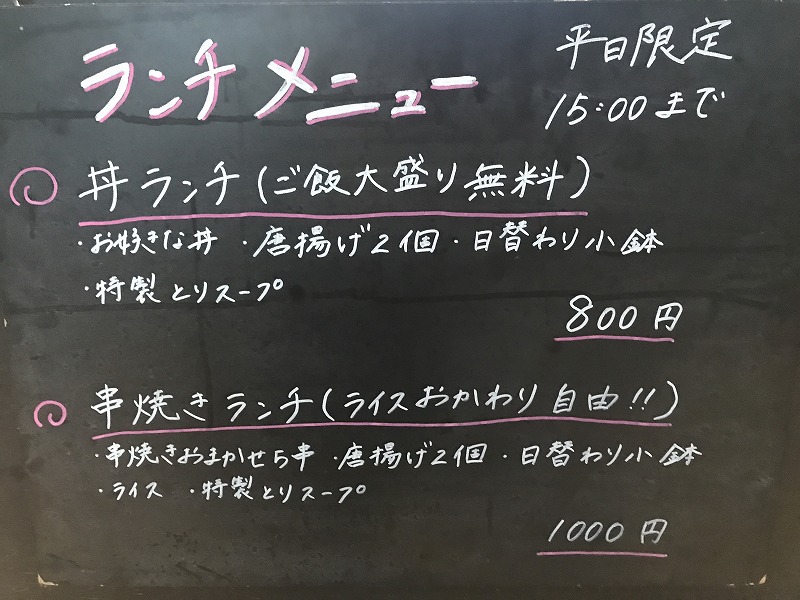 ランチメニュー
平日限定
15:00まで
丼ランチ(ご飯大盛り無料)
・お好きな丼 ・唐揚げ2個・日替わり小鉢
・特製とりスープ
800円
串焼きランチ(ライスおかわり自由!!)
・串焼きおまかせ5串 ・唐揚げ2個 ・日替わり小鉢
・ライス ・特製とりスープ
1000円